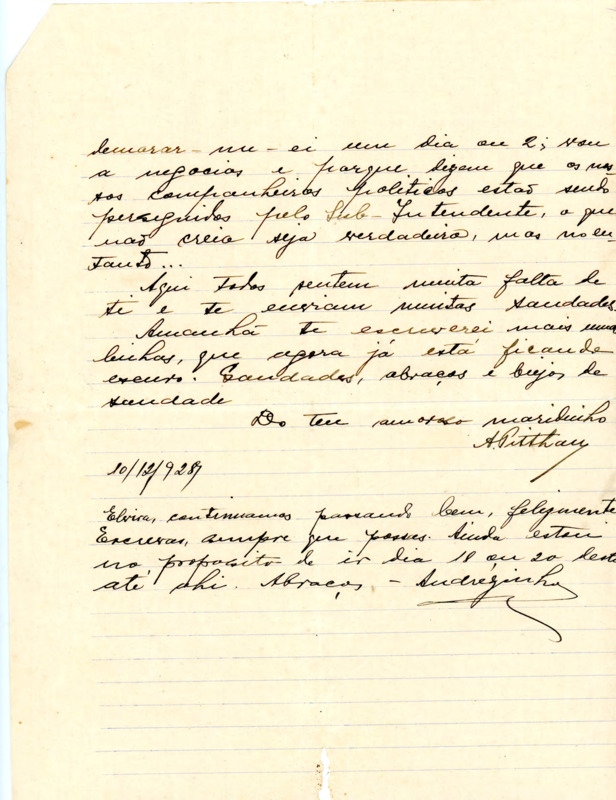 demorar-me-ei um dia ou 2; vou
a negocios e porque dizem que os nos
sos companheiros politicos estão sendo
perseguidos pelo Sub-Intendente, o que
não creio seja verdadeiro, mas no en
tanto...
Aqui todos sentem muita falta de
ti e te enviam muitas saudades.
Amanhã te escreverei mais umas
linhas, que agora já está ficando
escuro. Saudades, abraços e beijos de
saudade
Do teu amoroso maridinho
APitthan
10/12/928
Elvira, continuamos passando bem, felizmente
Escrevas, sempre que posses. Ainda estou
no proposito de ir dia 18 ou 20 deste
até ahi. Abraços - Andrézinho